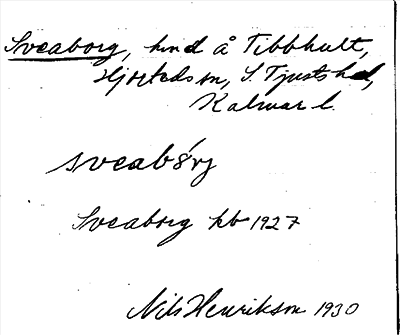 Sveaborg, hmd å Tibbhult,
Hjorteds sn, S. Tjusts hd,
Kalmar l.
sveabórj
Sveaborg kb 1927
Nils Henrikson 1930